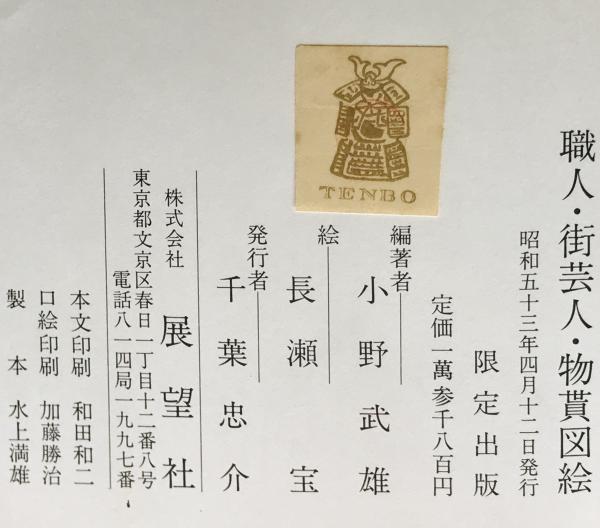 職人・街芸人・物貰図絵
昭和五十三年四月十二日発行
限定出版
定価一萬参千八百円
編著者 小野武雄
絵 長瀬宝
発行者 千葉忠介
株式会社 展望社
東京都文京区春日一丁目十二番八号
電話八一四局一九九七番
本文印刷 和田和二
口絵印刷 加藤勝治
製本 水上満雄
TENBO